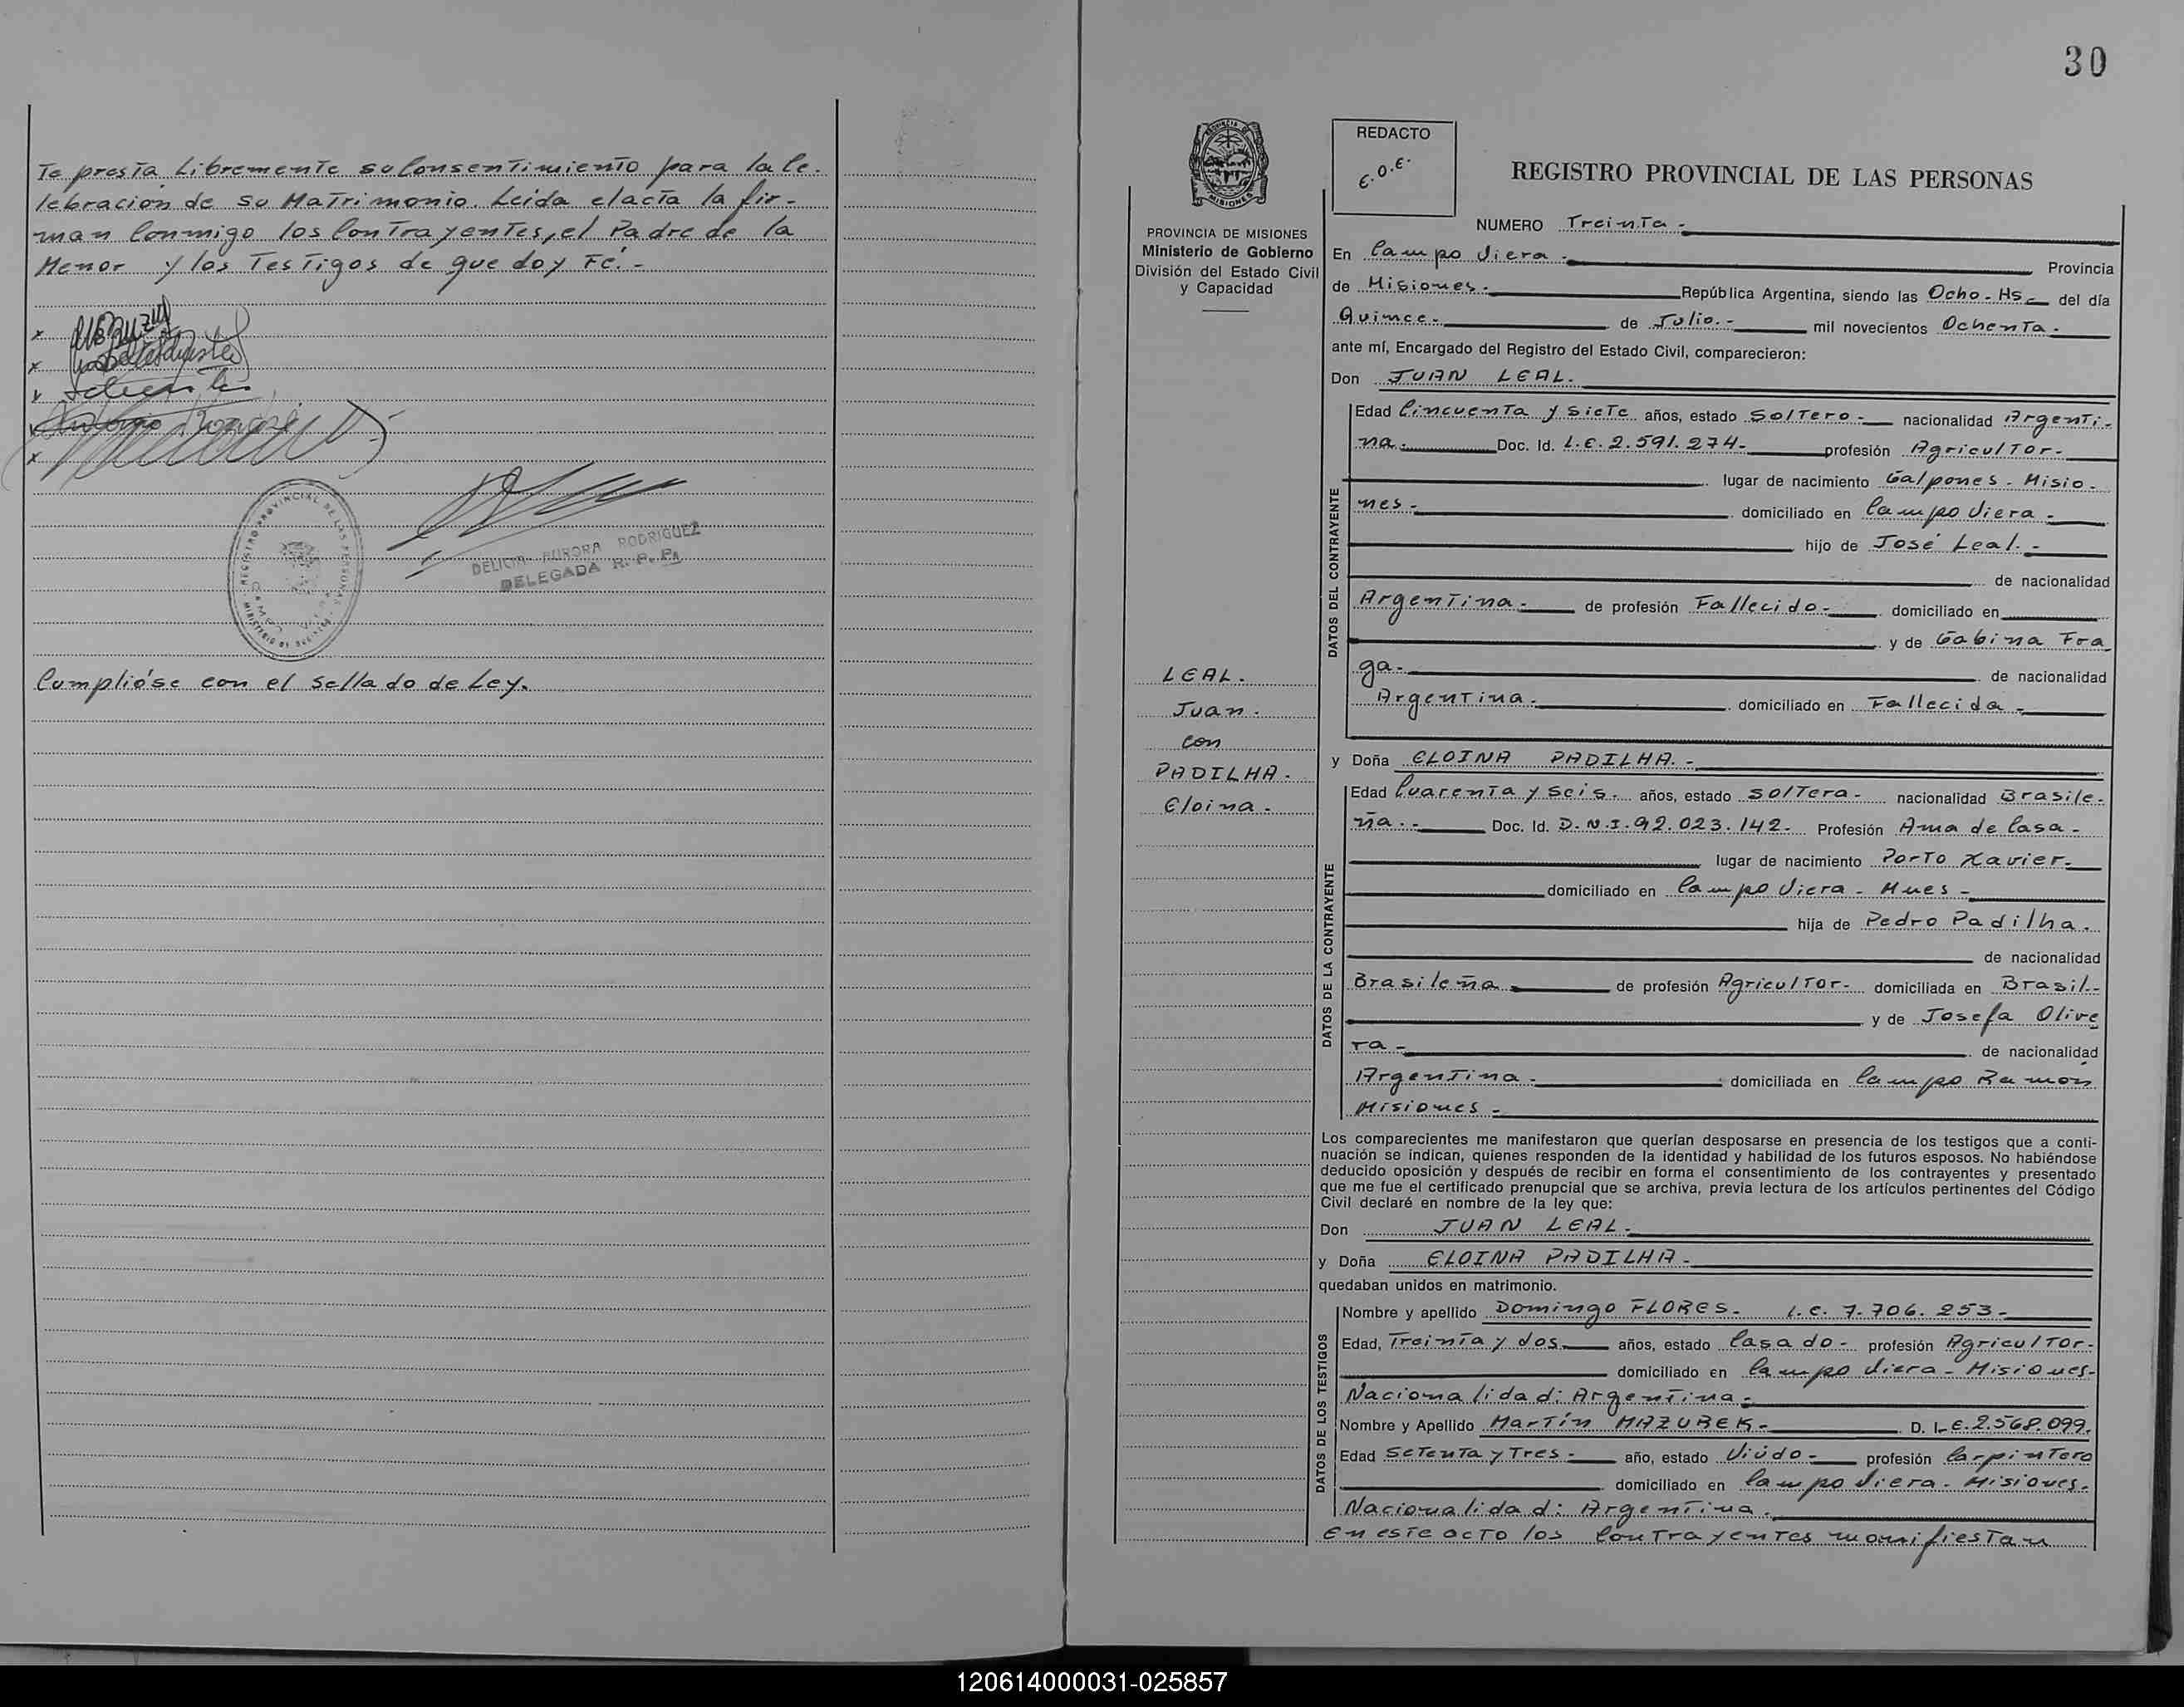 Te presta Libremente su Consentimiento para la Ce-
lebración de su Matrimonio. Leida el acta la fir-
man Conmigo los Contrayentes, el Padre de la
Menor y los Testigos de que doy Fé.-
x
x
x
x Antonio
x
REGISTRO PROVINCIAL DE LAS PERSONAS
DELICIA AURORA RODRIGUEZ
DELEGADA R. P. P.
Cumplióse con el sellado de Ley.
30
REDACTO
E.O.E.
PROVINCIA DE MISIONES
REGISTRO PROVINCIAL DE LAS PERSONAS
PROVINCIA DE MISIONES
Ministerio de Gobierno
División del Estado Civil
y Capacidad
LEAL.
Juan.
con
PADILHA.
Eloina.
NUMERO Treinta.
En Campo Viera. Provincia
de Misiones. República Argentina, siendo las Ocho-Hs- del día
Quince. de Julio.- mil novecientos Ochenta.
ante mí, Encargado del Registro del Estado Civil, comparecieron:
Don JUAN LEAL.
DATOS DEL CONTRAYENTE
Edad Cincuenta y siete años, estado Soltero- nacionalidad Argenti-
na. Doc. Id. L.E. 2.591.274- profesión Agricultor-
lugar de nacimiento Galpones - Misio-
nes- domiciliado en Campo Viera-
hijo de José Leal.-
de nacionalidad
Argentina- de profesión Fallecido- domiciliado en
y de Gabina Fra
ga- de nacionalidad
Argentina. domiciliado en Fallecida-
y Doña ELOINA PADILHA.-
DATOS DE LA CONTRAYENTE
Edad Cuarenta y seis. años, estado soltera- nacionalidad Brasile-
ña.- Doc. Id. D.N.I. 92.023.142- Profesión Ama de Casa-
lugar de nacimiento Porto Xavier-
domiciliado en Campo Viera - Mnes-
hija de Pedro Padilha.
de nacionalidad
Brasileña de profesión Agricultor- domiciliada en Brasil.-
y de Josefa Olive
ra- de nacionalidad
Argentina. domiciliada en Campo Ramón
Misiones-
Los comparecientes me manifestaron que querían desposarse en presencia de los testigos que a conti-
nuación se indican, quienes responden de la identidad y habilidad de los futuros esposos. No habiéndose
deducido oposición y después de recibir en forma el consentimiento de los contrayentes y presentado
que me fue el certificado prenupcial que se archiva, previa lectura de los artículos pertinentes del Código
Civil declaré en nombre de la ley que:
Don JUAN LEAL.
y Doña ELOINA PADILHA-
quedaban unidos en matrimonio.
DATOS DE LOS TESTIGOS
Nombre y apellido Domingo FLORES- L.E. 7.706.253-
Edad, Treinta y dos años, estado Casado- profesión Agricultor-
domiciliado en Campo Viera - Misiones-
Nacionalidad: Argentina-
Nombre y Apellido Martín MAZUREK- D. I. L.E. 2.568.099.
Edad Setenta y Tres- año, estado Viúdo- profesión Carpintero
domiciliado en Campo Viera. Misiones.
Nacionalidad: Argentina.
En este acto los Contrayentes manifiestan
120614000031-025857